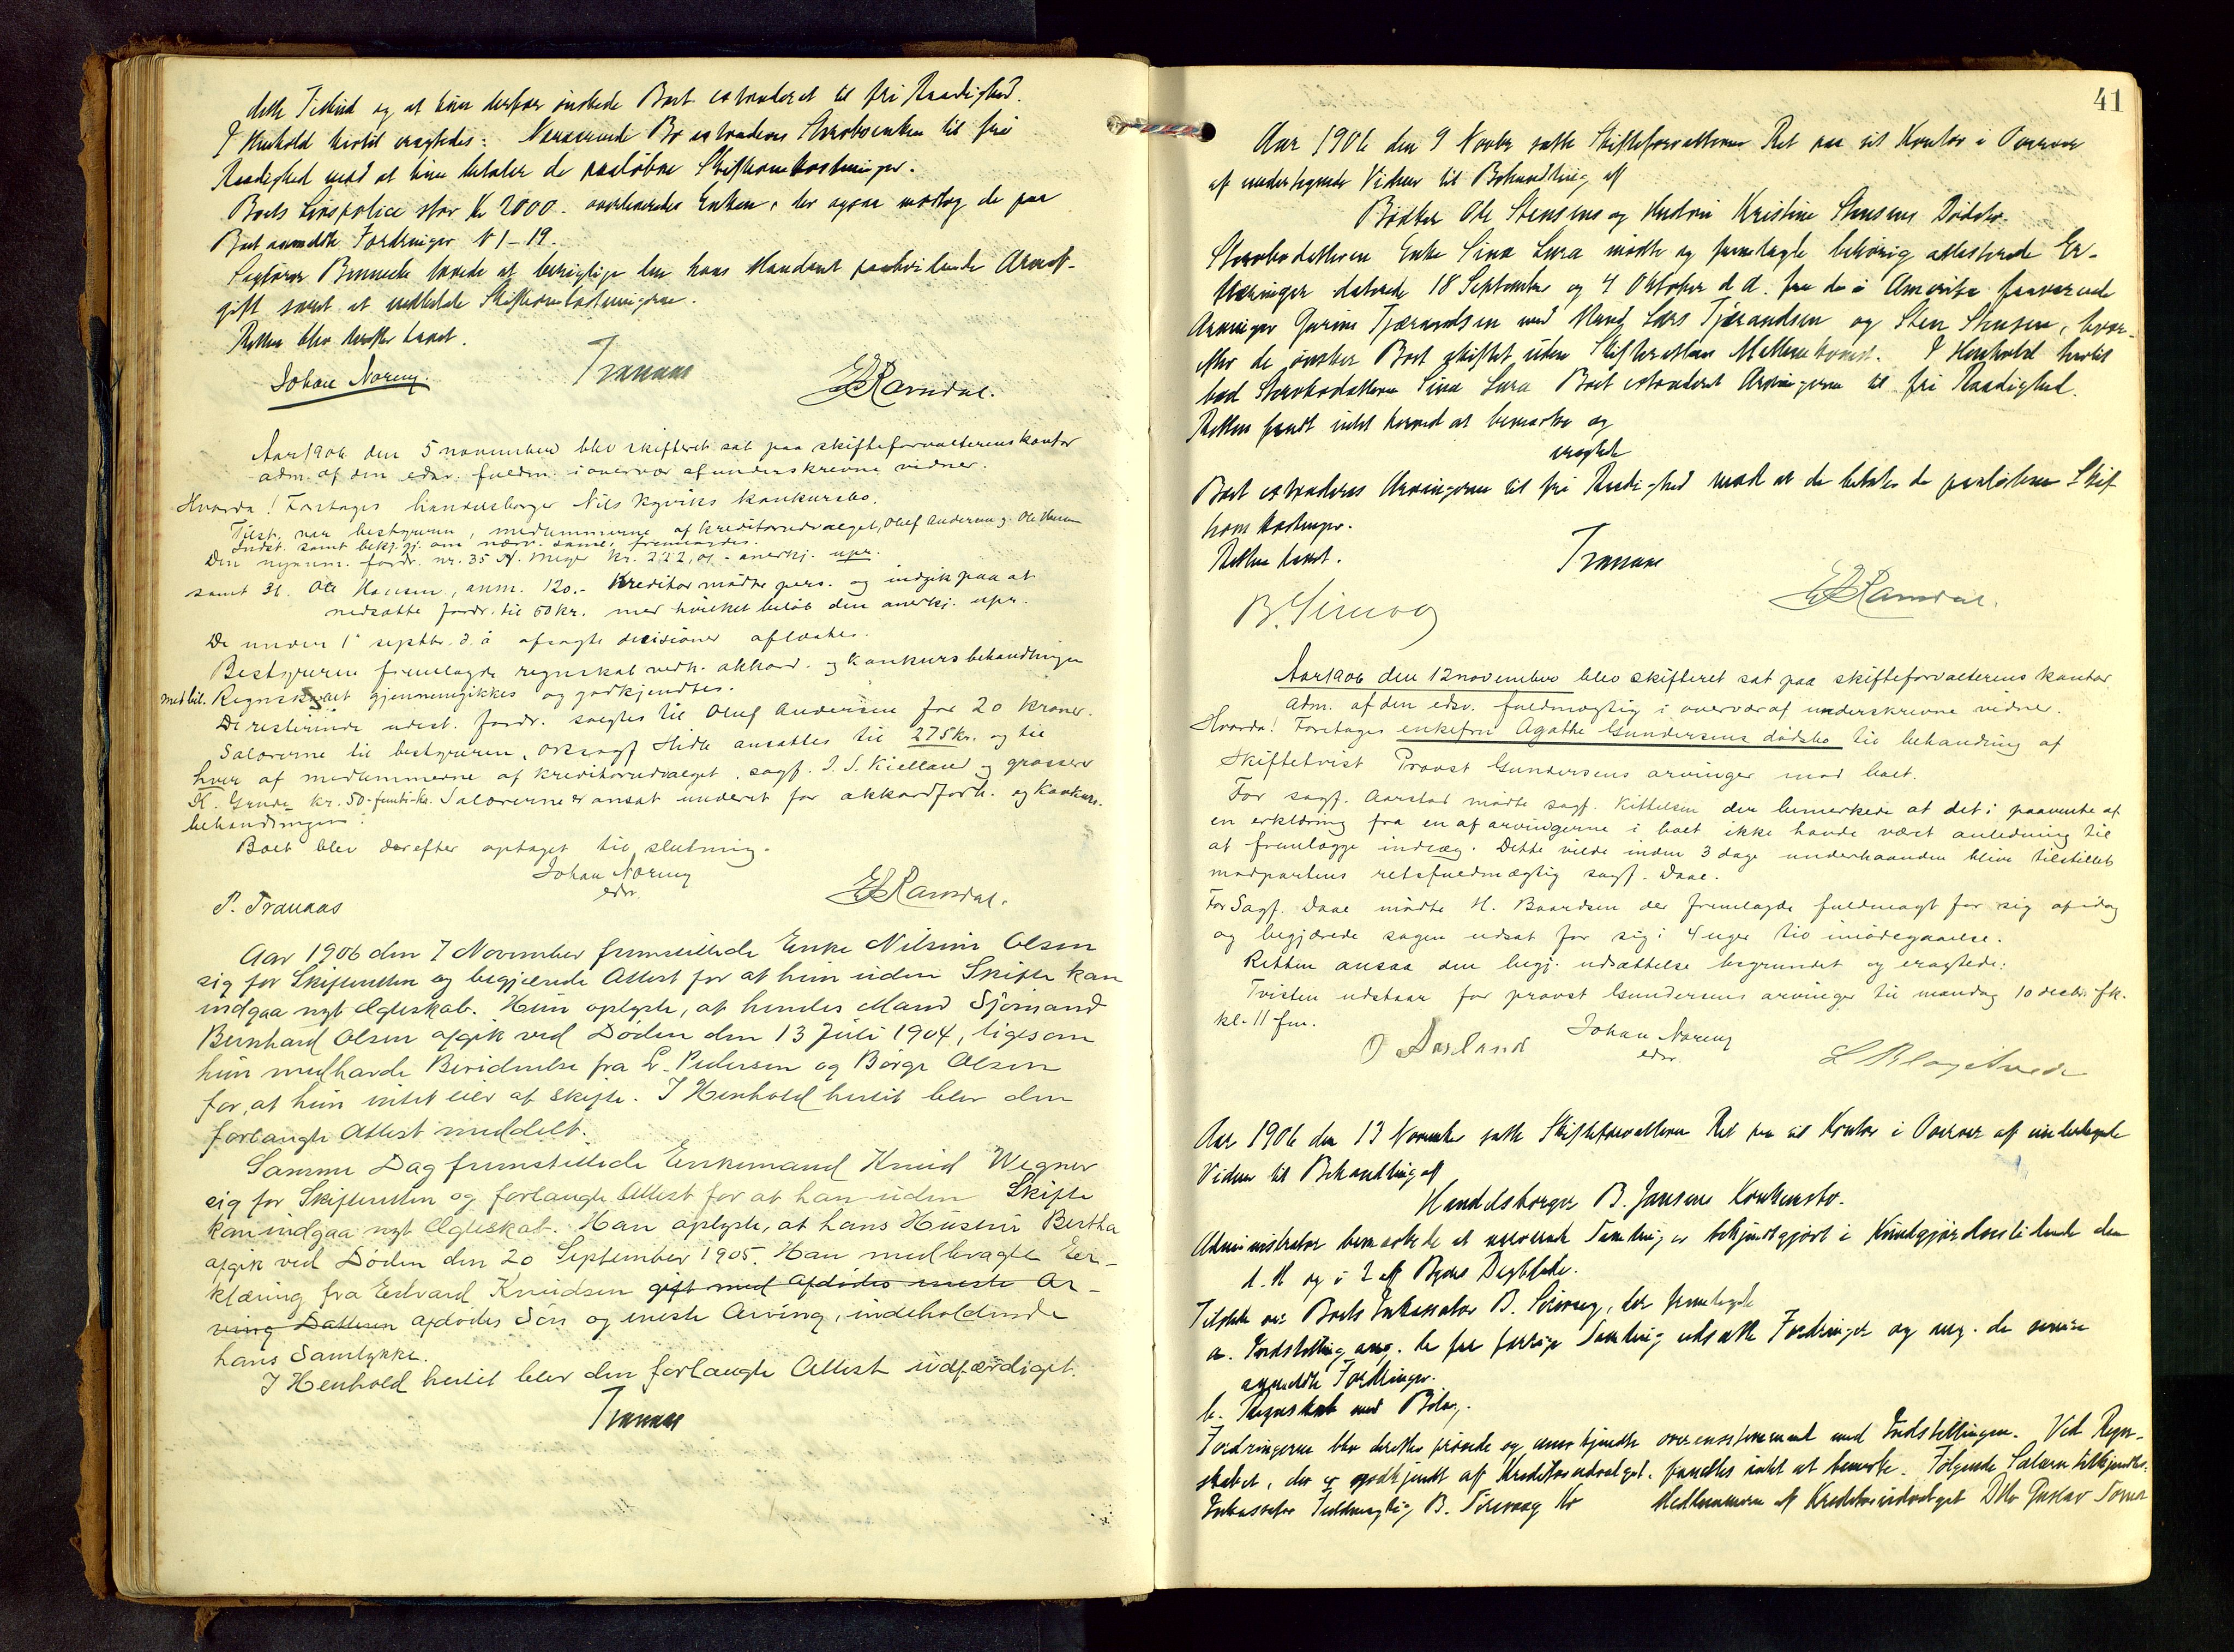 dette Tilbud og at hun derfor ønskede Boet extraderet til fri Raadighed.
I Henhold hertil eragtedes: Nærværende Bo extraderes Stervboenken til fri
Raadighed mod at hun betaler de paaløbne Skifteomkostninger.
Boets Livspolice stor Kr 2000. overleveredes Enken, der ogsaa modtog de paa
Boet anmeldte Fordringer N 1-19.
Sagfører lovede at berigtige den hans Mandant paahvilende Arveaf-
gift samt at indbetale Skifteomkostningerne.
Retten blev derefter hævet.
Johan Noreng. Tranaas E Ramdal.
Aar 1906 den 5 november blev skifteret sat paa skifteforvalterens kontor
adm. af den edsv. fuldm. i overvær af underskrevne vidner.
Hvorda! Foretages handelsborger Nils Kyviks konkursbo.
Tilst. var bestyreren, medlemmerne af kreditorudvalget, Oluf Andersen og Ole Hansen
Indst. samt bekj. gj. om nærv. saml. fremlagdes.
Den nyanm. fordr. nr. 35 A. Meyer kr. 222,01 - anerkj. upr.
samt 36. Ole Hansen, anm. 120.- Kreditor mødte pers. og indgik paa at
nedsætte fordr. til 60 kr. med hvilket beløb den anerkj. upr.
De under 1 septbr. d. å afsagte decisioner oplæstes.
Bestyreren fremlagde regnskab vedk. akkord. og konkursbehandlingen
med bil. Regnskabet gjennemgikkes og godkjendtes.
De resterende udest. fordr. solgtes til Oluf Andersen for 20 kroner.
Salærerne til bestyreren, orsagf Hidle ansattes til 275 kr. og til
hver af medlemmerne af kreditorudvalget, sagf. J. S. Kielland og grosserer
K. Grude kr. 50-femti-kr. Salærerne er ansat underet for akkordforh. og konkurs-
behandlingen.
Boet blev derefter optaget til slutning.
Johan Noreng
edsv.
P. Tranaas E Ramdal.
Aar 1906 den 7 November fremstillede Enke Nilsine Olsen
sig for Skifteretten og begjærede Attest for at hun uden Skifte kan
indgaa nyt Ægteskab. Hun oplyste, at hendes Mand Sjømand
Bernhard Olsen afgik ved Døden den 13 Juli 1904, ligesom
hun medhavde Bevidnelse fra L. Pedersen og Børge Olsen
for, at hun intet eier at skifte. I Henhold hertil blev den
forlangte Attest meddelt.
Samme Dag fremstillede Enkemand Knud Wegner
sig for Skifteretten og forlangte Attest for at han uden Skifte
kan indgaa nyt Ægteskab. Han oplyste, at hans Hustru Bertha
afgik ved Døden den 20 September 1905. Han medbragte Er-
klæring fra Edvard Knudsen gift med Afdødes eneste Ar-
ving Datteren afdødes Søn og eneste Arving, indeholdende
hans Samtykke.
I Henhold hertil blev den forlangte Attest udfærdiget.
Tranaas
41
Aar 1906 den 9 Novbr satte Skifteforvalteren Ret paa sit Kontor i Overvær
af undertegnede Vidner til Behandling af
Bødker Ole Stensens og Hustru Kristine Stensens Dødsbo.
Stervbodatteren Enke Sina Lura mødte og fremlagte behørig attesterede Er-
klæringer daterede 18 September og 4 Oktober d. A. fra de i Amerika fraværende
Arvinger Gurine Tjærandsen med Mand Lars Tjærandsen og Sten Stensen, hvor-
efter de ønsker Boet skiftet uden Skifterettens Mellemkomst. I Henhold hertil
bad Stervbodatteren Sina Lura Boet extraderet Arvingerne til fri Raadighed.
Retten fandt intet herved at bemærke og
eragtede
Boet extraderes Arvingerne til fri Raadighed mod at de betaler de paaløbne Skif
teomkostninger.
Retten hævet. Tranaas
B. Sirevaag E Ramdal.
Aar 1906 den 12 november blev skifteret sat paa skifteforvalterens kontor
adm. af den edsv. fuldmægtig i overvær af underskrevne vidner.
Hvorda! Foretages enkefru Agathe Gundersens dødsbo til behandling af
Skiftetvist Provst Gundersens arvinger mod boet.
For sagf. Aarstad mødte sagf. Kittelsen der bemerkede at det i paavente af
en erklæring fra en af arvingerne i boet ikke havde været anledning til
at fremlægge indlæg. Dette vilde inden 3 dage underhaanden blive tilstillet
modpartens retsfuldmægtig sagf. Daae.
For Sagf. Daae mødte H. Baardsen der fremlagde fuldmagt for sig af idag
og begjærede sagen udsat for sig i 4 uger til imødegaaelse.
Retten ansaa den begj. udsættelse begrundet og eragtede:
Tvisten udstaar for provst Gundersens arvinger til mandag 10 decbr. fk.
kl. 11 fm.
Johan Noreng
edsv.
Aar 1906 den 13 November satte Skifteforvalteren Ret paa sit Kontor i Overvær af undertegnede
Vidner til Behandling af
Handelsborger B. Jansens Konkursbo.
Administrator bemærkede at nærværende Samling er bekjendtgjort i Kundgjørelsestidende den
d. M og i 2 af Byens Dagblade.
Tilstede var Boets Inkassator B. Sirevaag, der fremlagde
a. Indstilling ang. de fra forrige Samling udsatte Fordringer og ang. de senere
anmeldte Fordringer.
b. Regnskab med Bilag.
Fordringerne blev derefter prøvede og anerkjendte overensstemmende med Indstillingen. Ved Regn-
skabet, der er godkjendt af Kreditorudvalget, fandtes intet at bemærke. Følgende Salærer tilkjendtes:
Inkassator Fuldmægtig B. Sirevaag Kr Medlemmerne af Kreditorudvalget Gustav